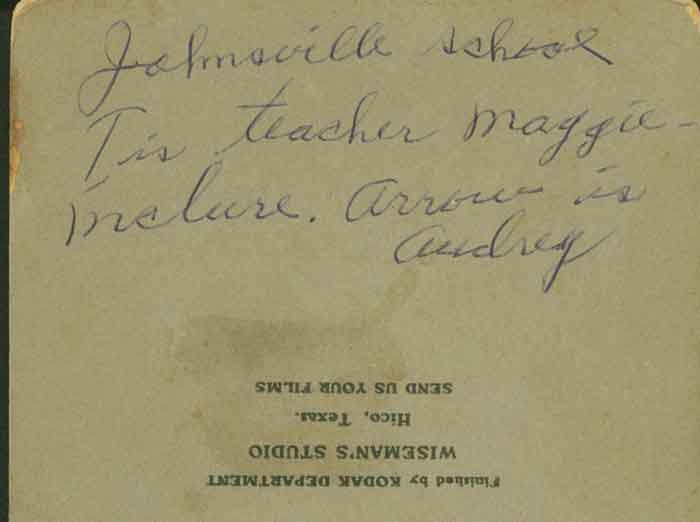 Johnsville school
T is teacher Maggie -
McClure. Arrow is
Audrey
Finished by KODAK DEPARTMENT
WISEMAN'S STUDIO
Hico, Texas.
SEND US YOUR FILMS